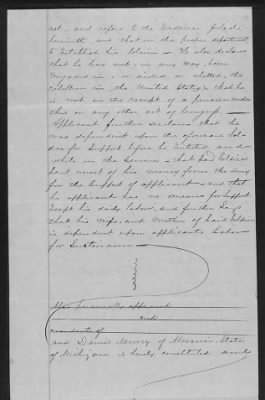 act, and refers to the Evidence filed
herewith and that in the proper department
to Establish his claim - He also declares
that he has not, in any way, been
Engaged in, or aided or abetted, the
rebellion in the United States, that he
is not in the receipt of a pension under
this or any other act of Congress -
Applicant further declares that he
was dependent upon the aforesaid Sol-
dier for Support before he Enlisted and
while in the Service - that said Soldier
Sent most of his money from the army
for the Support of applicant - and that
he applicant has no means for Support
Except his daily labor, and further Says
that his wife, and Mother of Said Soldier
is dependent upon applicants Labor
for Sustenance -
Also personally appeared
and
residents of
and Daniel of Monroe State
of Michigan is hereby constituted and